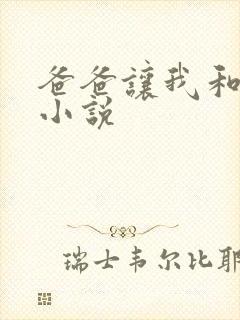 爸爸讓我和
小說
瑞士韦尔比耶